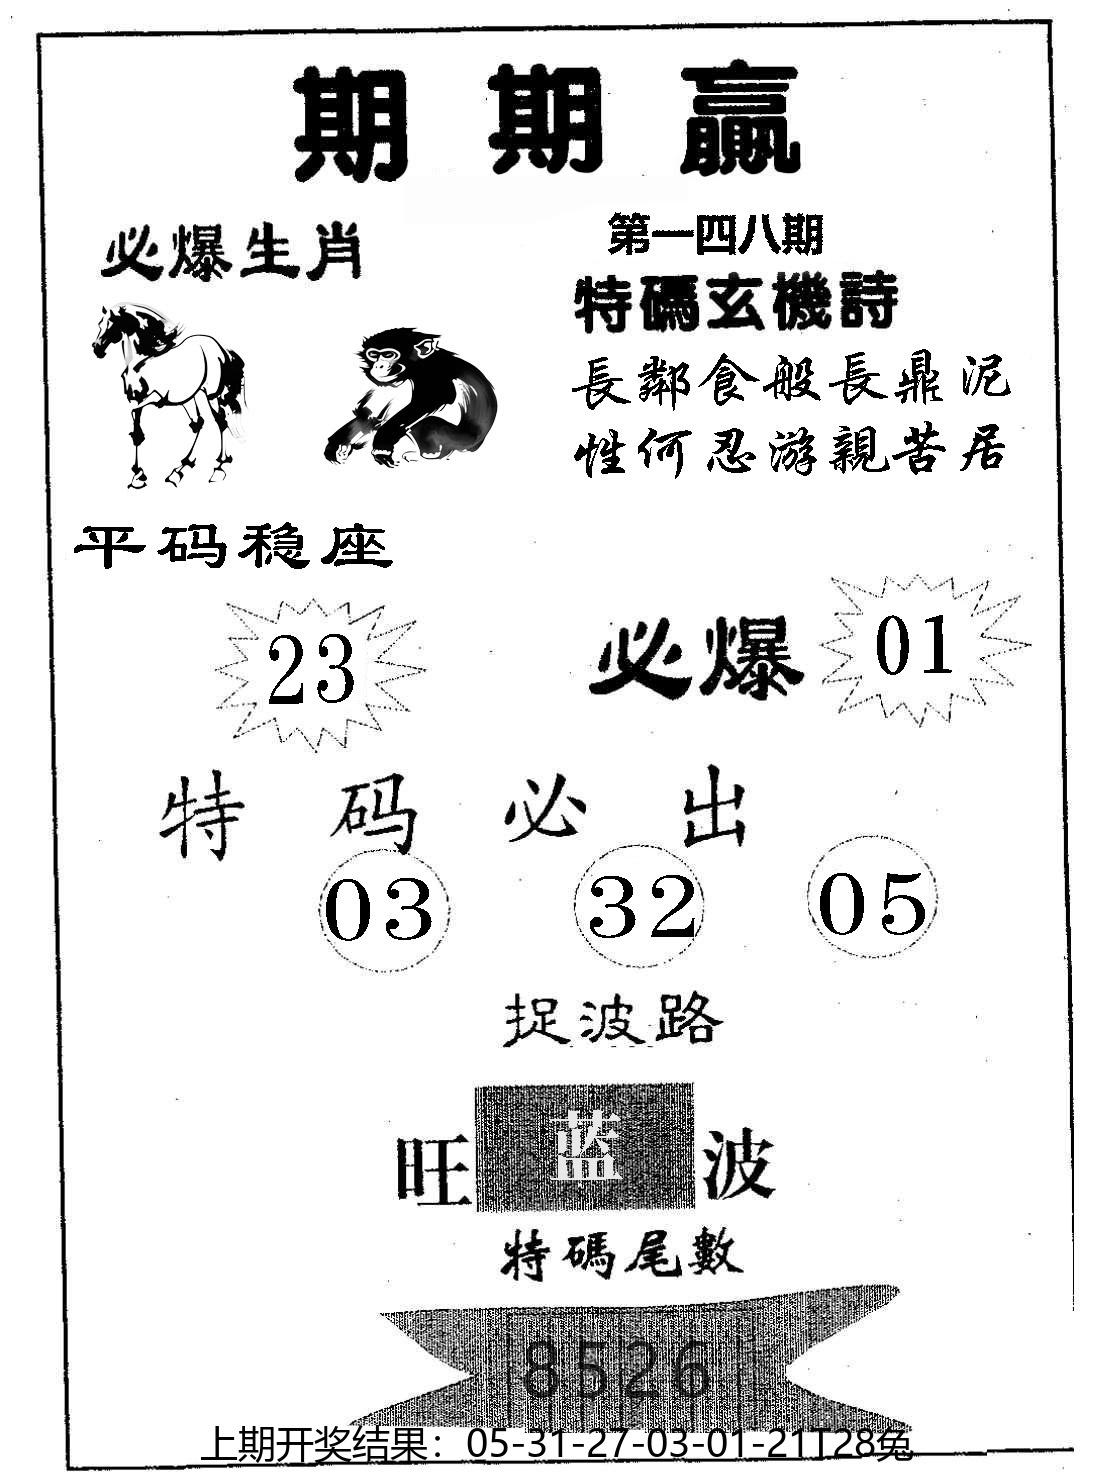 期期贏
必爆生肖
第一四八期
特碼玄機詩
長鄰食般長鼎泥
性何忍游親苦居
平码稳座
23
必爆
01
特码必出
03 32 05
捉波路
旺蓝波
特碼尾數
8526
上期开奖结果：05-31-27-03-01-21T28兔